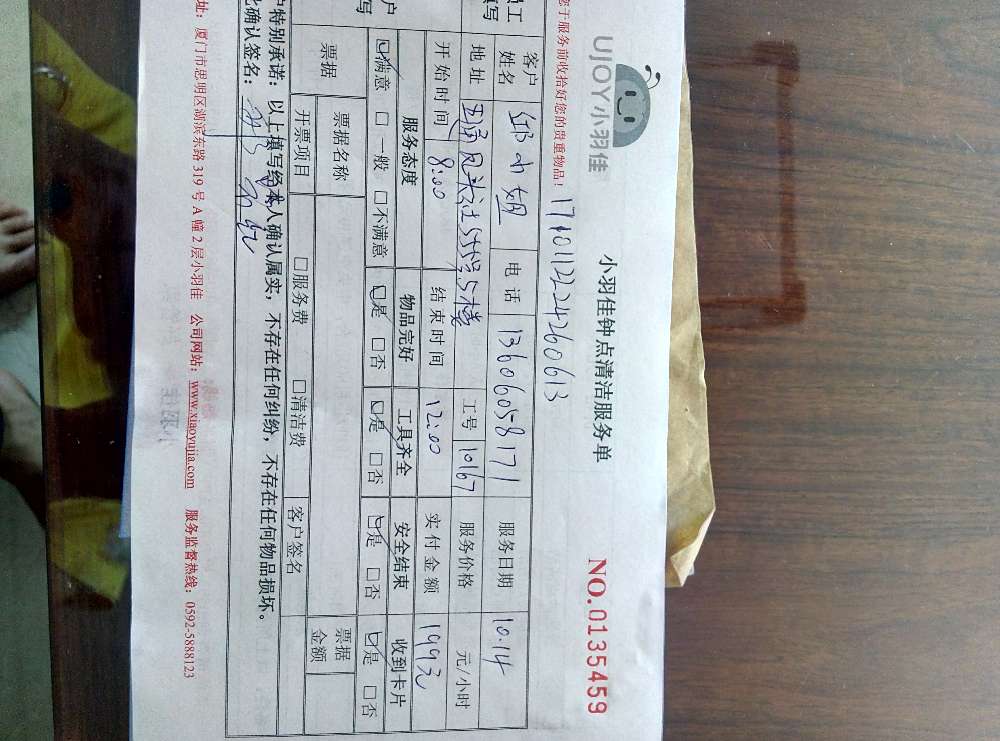 UJOY小羽佳
小羽佳钟点清洁服务单
NO.0135459
您于服务前收拾好您的贵重物品！
171011224260613
客户姓名 邱小姐 电话 13606058171 服务日期 10.14
地址 工号 10167 服务价格 元/小时
开始时间 8:00 结束时间 12:00 实付金额 199元
服务态度 物品完好 工具齐全 安全结束 收到卡片
☑满意 □一般 □不满意 ☑是 □否 ☑是 □否 ☑是 □否 ☑是 □否
票据 票据名称 票据金额
开票项目 □服务费 □清洁费 客户签名
户特别承诺：以上填写经本人确认属实，不存在任何纠纷，不存在任何物品损坏。
此确认签名：
址：厦门市思明区湖滨东路319号A幢2层小羽佳 公司网站：www.xiaoyujia.com 服务监督热线：0592-5888123